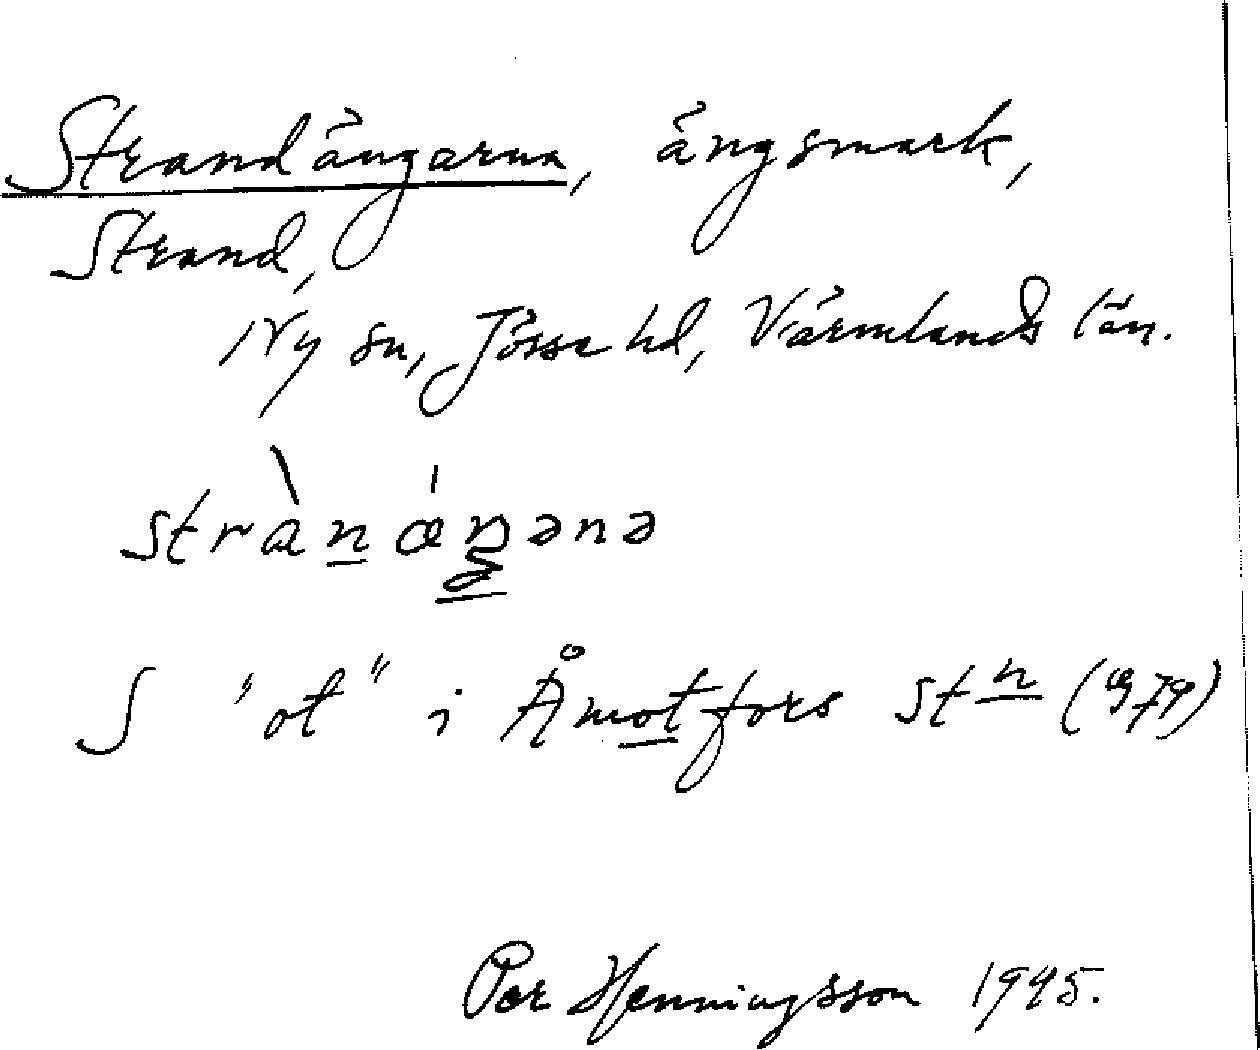 Strandängarna, ängsmark,
Strand,
Ny sn, Jösse hd, Värmlands län.
stràn ǽŋənə
S "ot" i Åmotfors stn
Per Henningsson 1945.